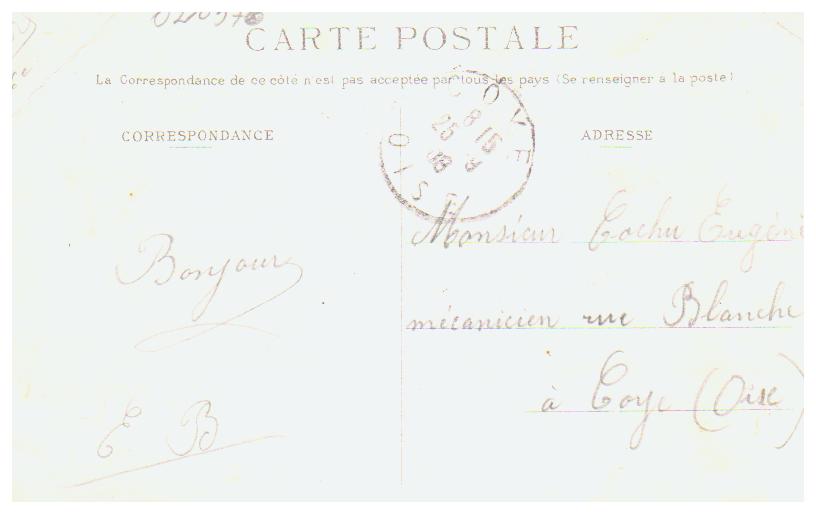 CARTE POSTALE
La Correspondance de ce côté n'est pas acceptée par tous les pays (Se renseigner à la poste)
CORRESPONDANCE
ADRESSE
COYE
8 15
25 8
08
OISE
Monsieur Cochu Eugène
mécanicien rue Blanche
à Coye (Oise)
Bonjour
E B